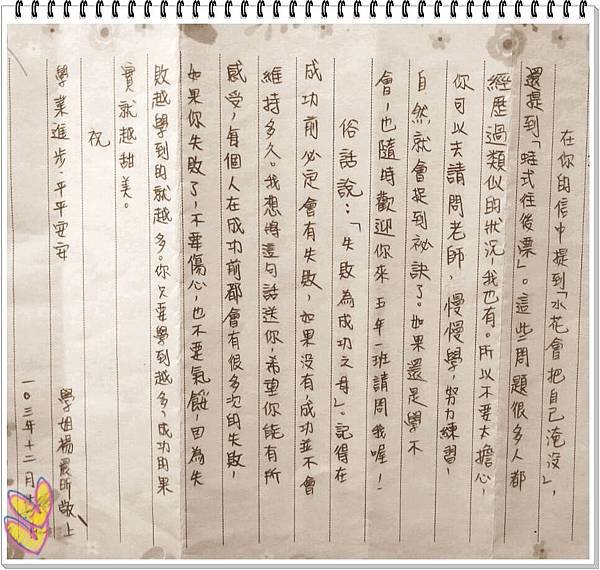 在你的信中提到「水花會把自己淹沒」,
還提到「蛙式往後漂」。這些問題很多人都
經歷過類似的狀況,我也有。所以不要太擔心,
你可以去請問老師,慢慢學,努力練習,
自然就會捉到祕訣了。如果還是學不
會,也隨時歡迎你來五年一班請問我喔!
俗話說:「失敗為成功之母」。記得在
成功前必定會有失敗,如果沒有,成功並不會
維持多久。我想將這句話送你,希望你能有所
感受,每個人在成功前都會有很多次的失敗,
如果你失敗了,不要傷心,也不要氣餒,因為失
敗越學到的就越多。你只要學到越多,成功的果
實就越甜美。
祝
學業進步、平平安安
學姐楊晨昕敬上
一〇三年十二月